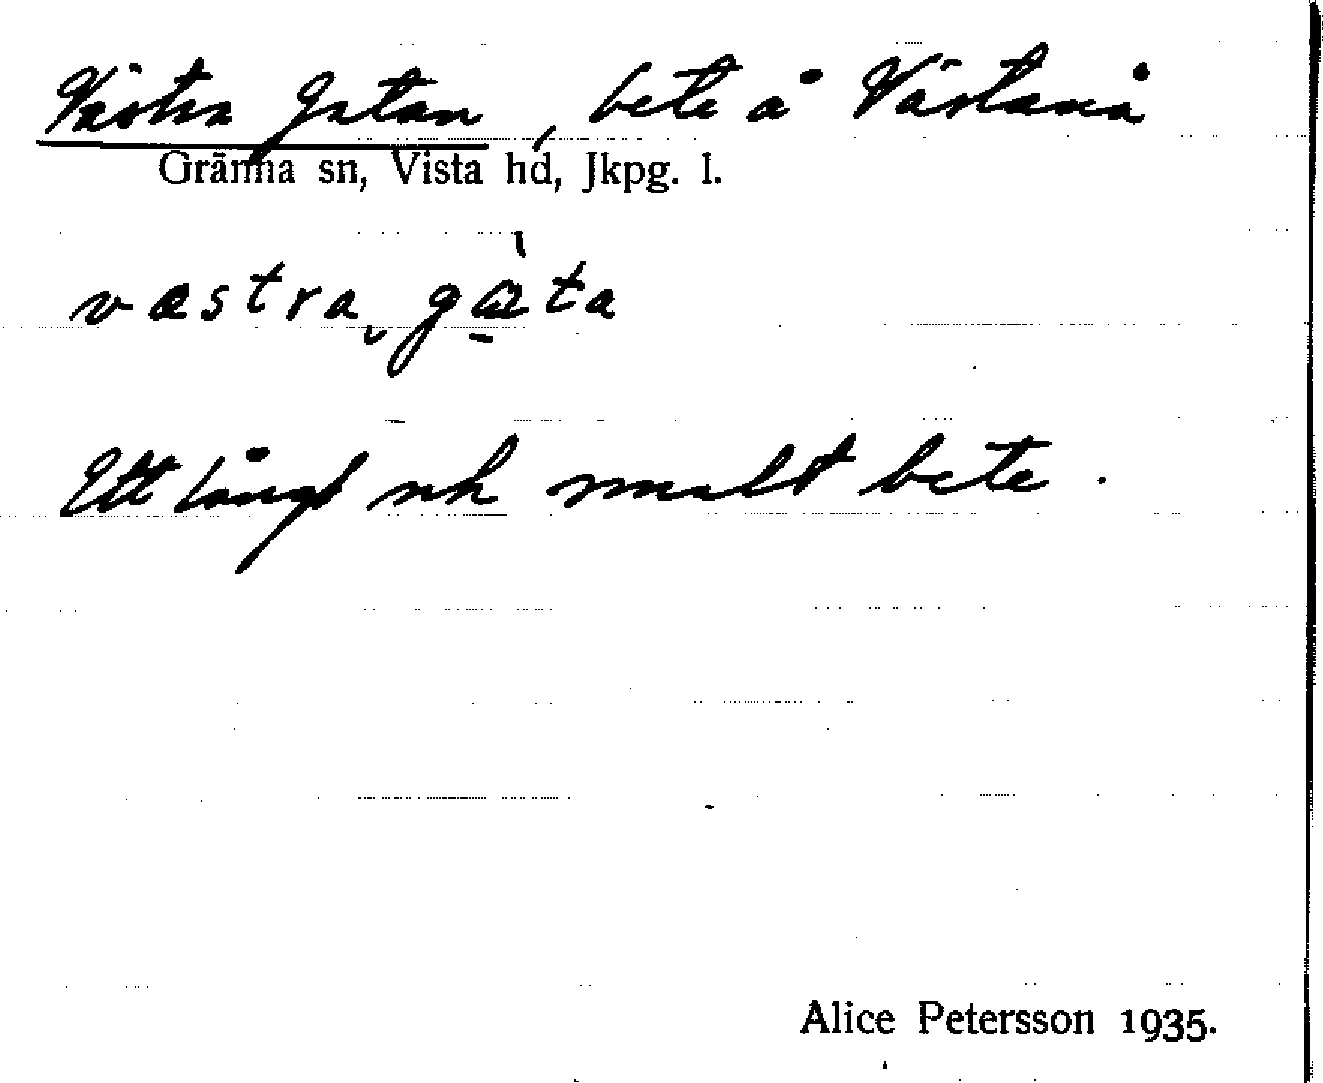 Västra Gatan, bete å Västanå
Gränna sn, Vista hd, Jkpg. l.
væstra gàta
Ett långt och smalt bete.
Alice Petersson 1935.